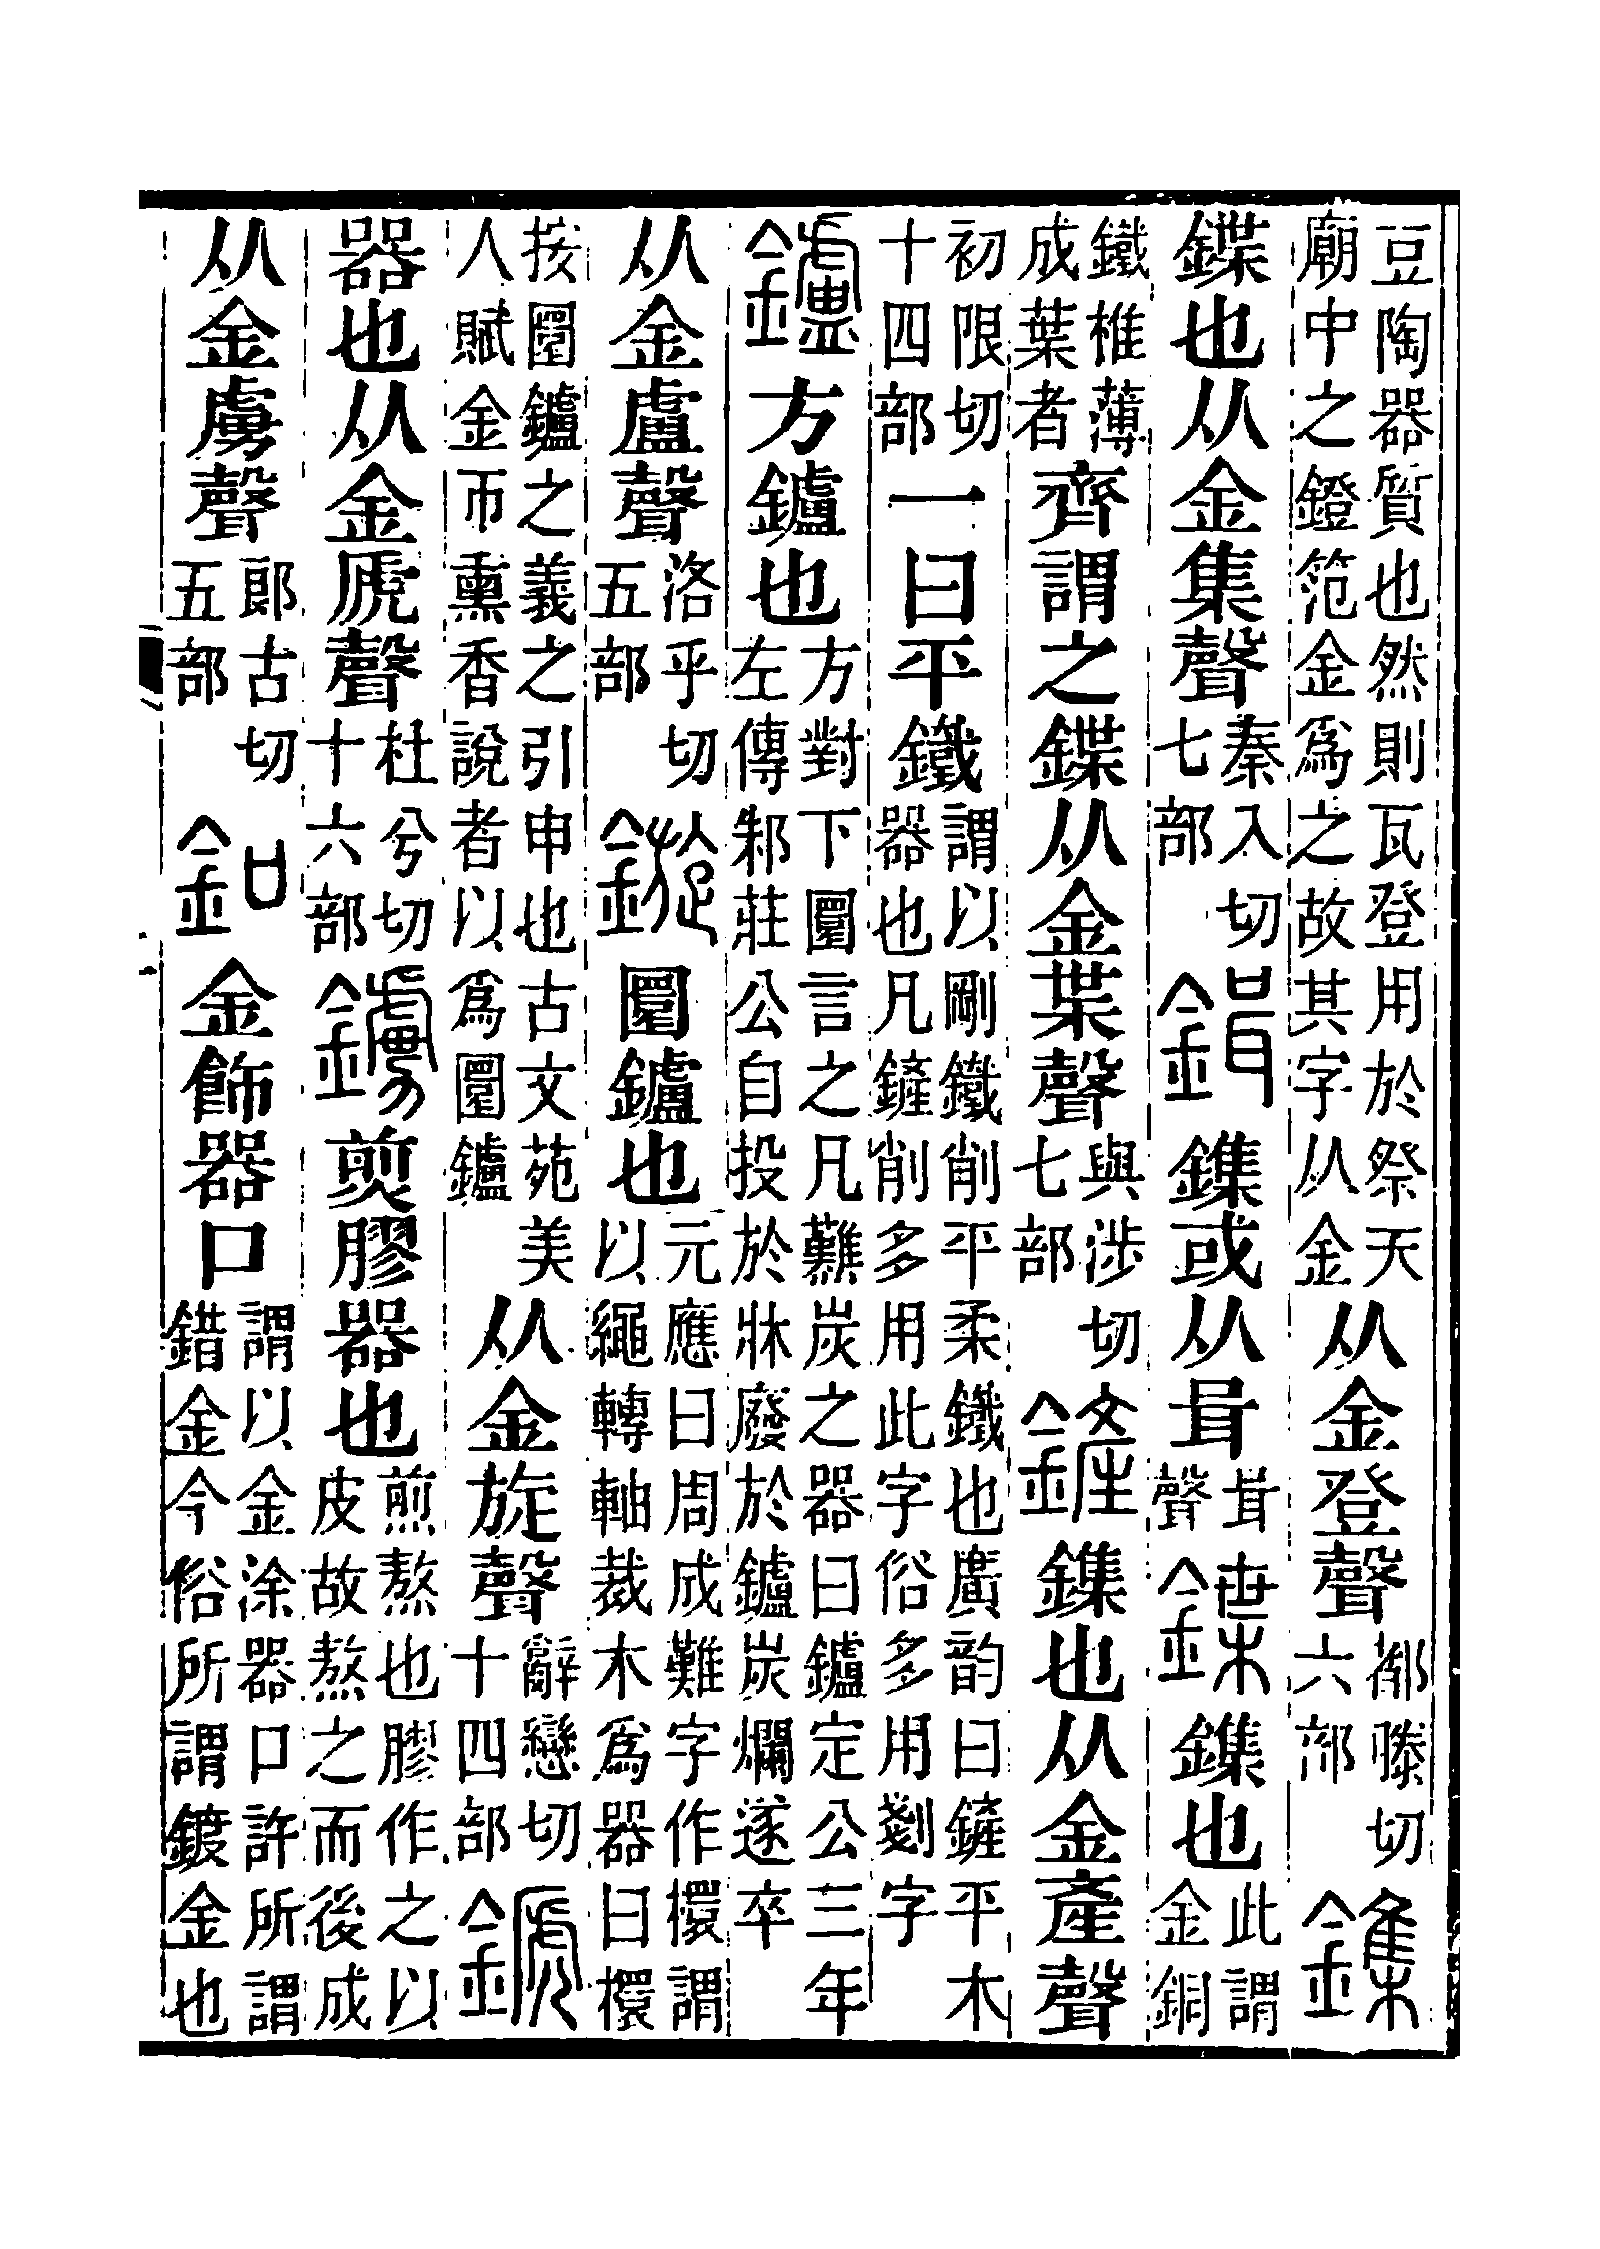 豆陶器質也然則瓦登用於祭天廟中之鐙笵金爲之故其字从金从金登聲都滕切六部鏶
鍱也从金集聲秦入切七部鍓鏶或从咠咠聲鍱鏶也此謂金銅
鐵椎薄成葉者齊謂之鍱从金葉聲與涉切七部鏟鏶也从金產聲
初限切十四部一曰平鐵謂以剛鐵削平柔鐵也廣韵曰鏟平木器也凡鏟削多用此字俗多用剗字
鑪方鑪也方對下圜言之凡難炭之器曰鑪定公三年左傳邾莊公自投於牀廢於鑪炭爛遂卒
从金盧聲洛乎切五部鏇圜鑪也元應曰周成難字作檈謂以繩轉軸裁木爲器曰檈
按圜鑪之義之引申也古文苑美人賦金帀熏香說者以爲圜鑪从金旋聲辭戀切十四部䥶
器也从金虒聲杜兮切十六部鐪煎膠器也煎熬也膠作之以皮故熬之而後成
从金虜聲郎古切五部釦金飾器口謂以金涂器口許所謂錯金今俗所謂鍍金也